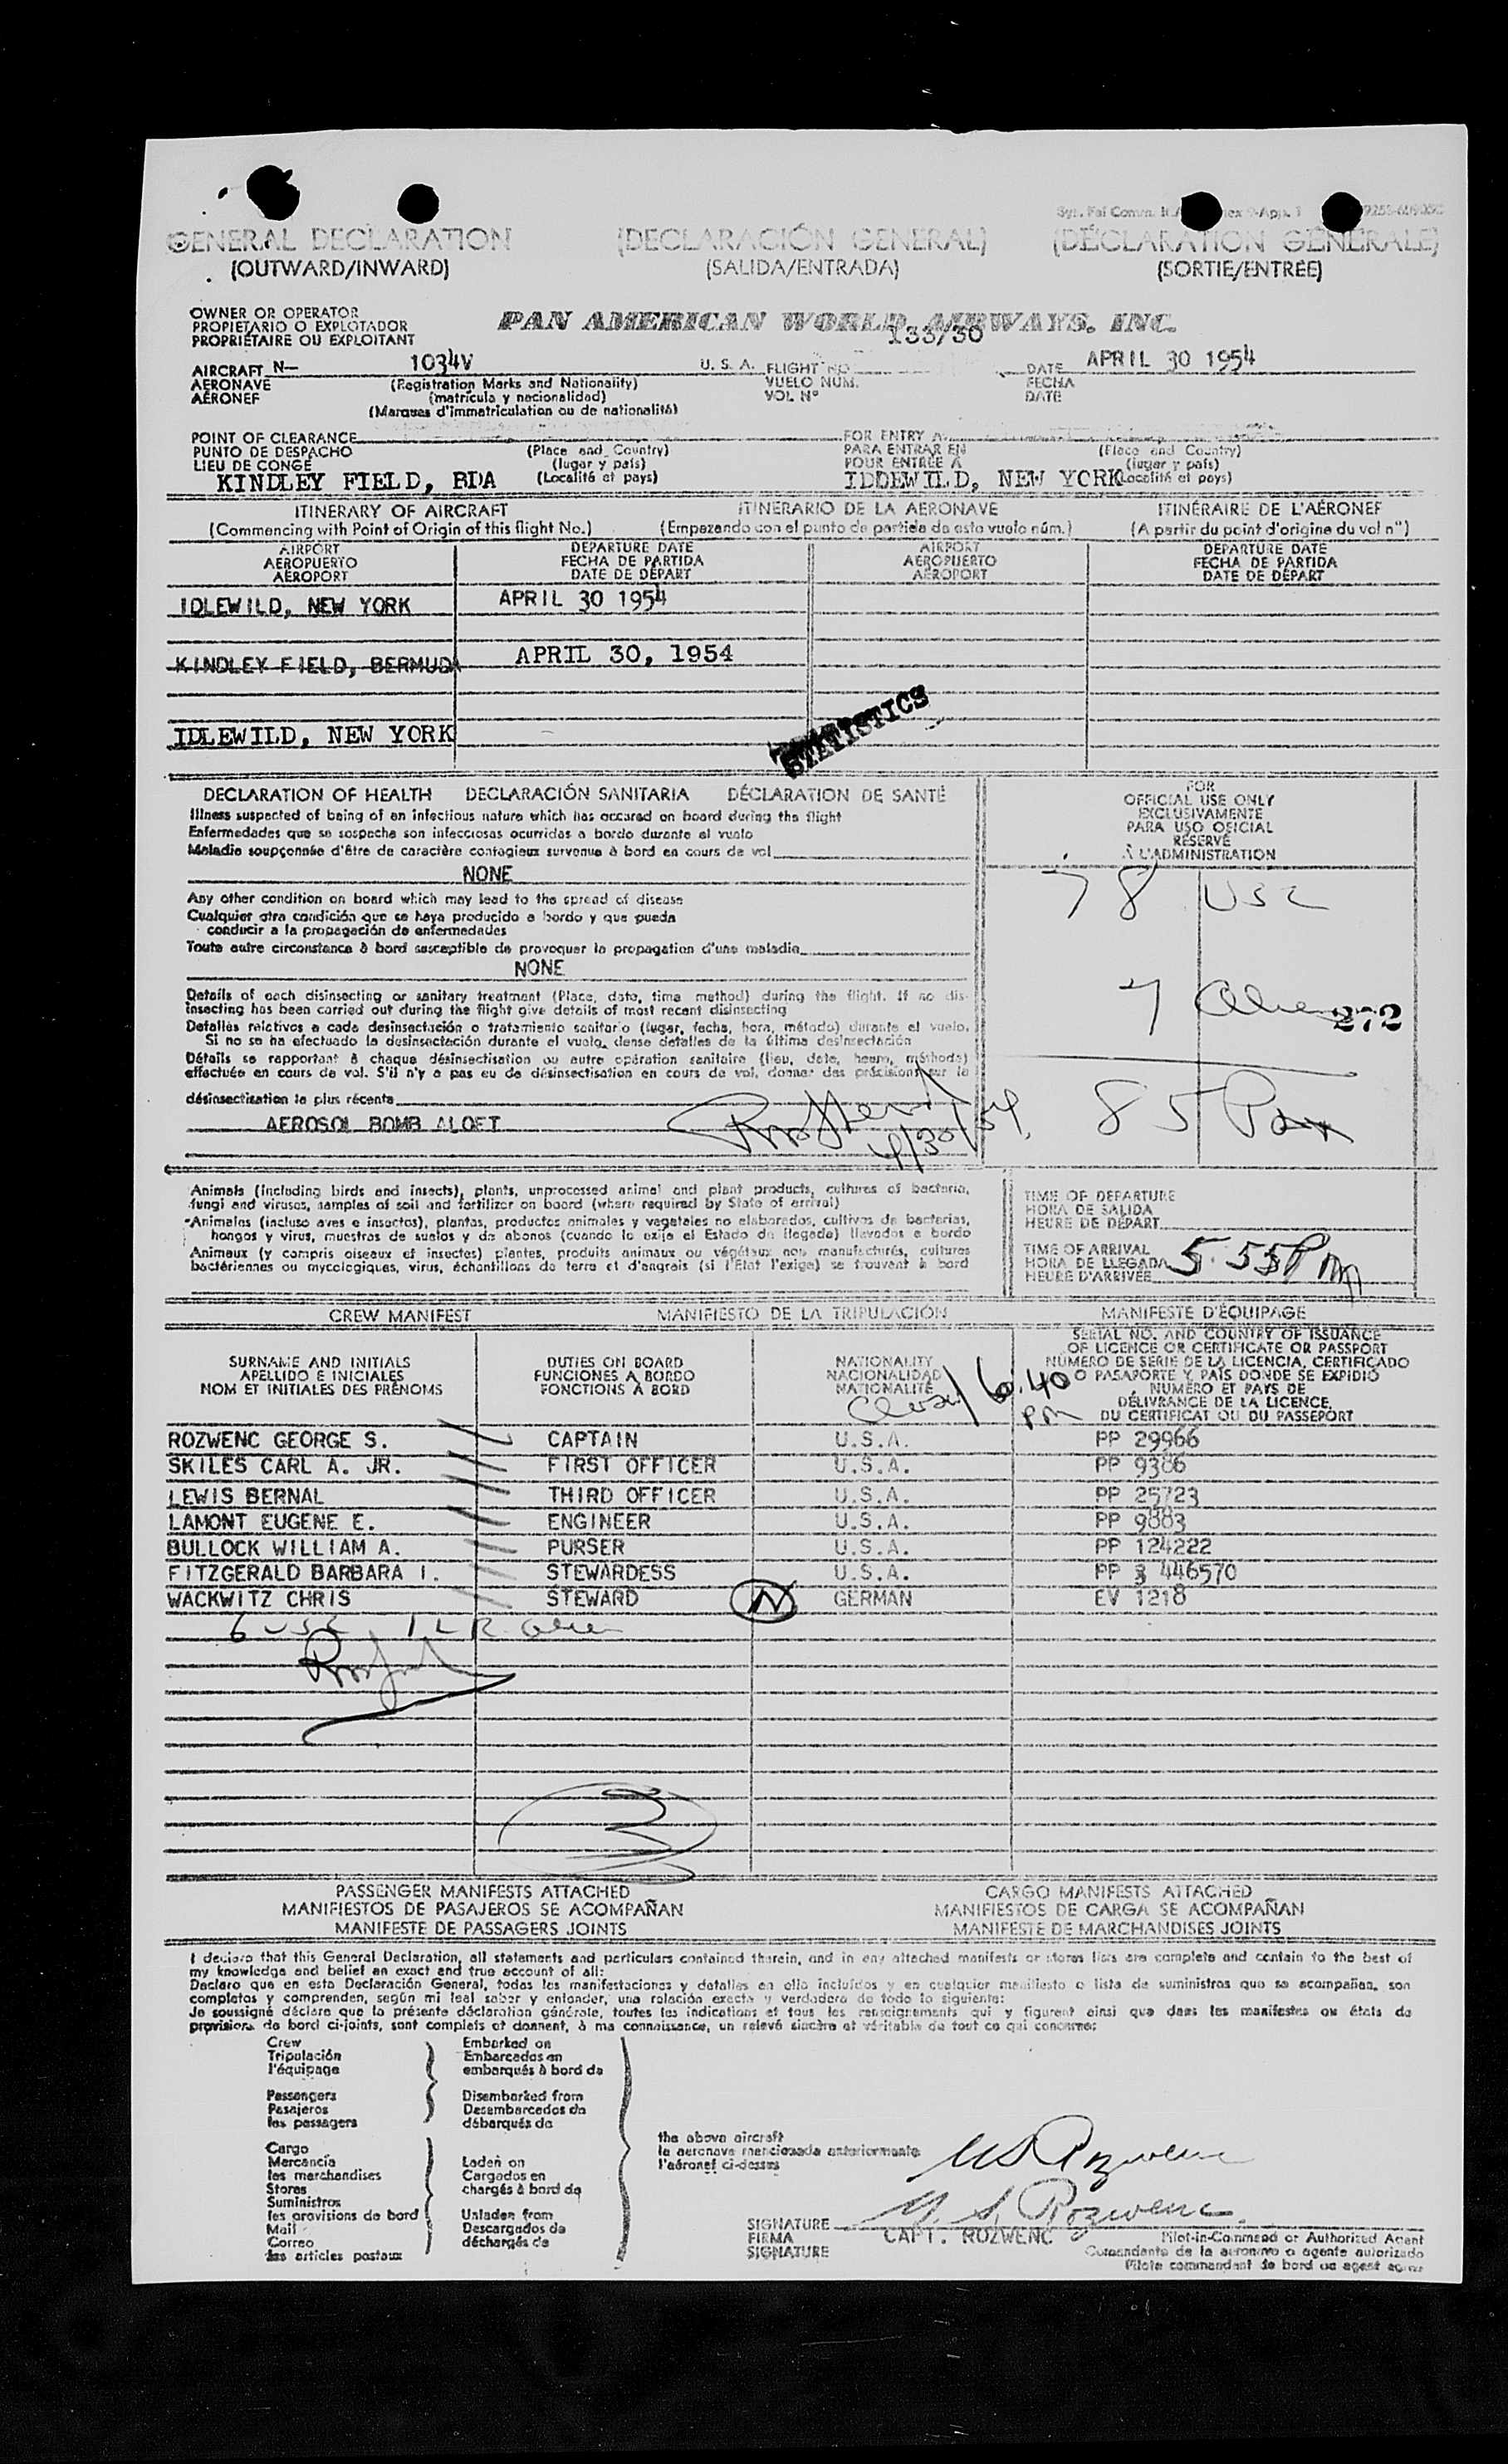 GENERAL DECLARATION (DECLARACIÓN GENERAL) (DÉCLARATION GÉNÉRALE)
(OUTWARD/INWARD) (SALIDA/ENTRADA) (SORTIE/ENTRÉE)
OWNER OR OPERATOR
PROPIETARIO O EXPLOTADOR
PROPRIÉTAIRE OU EXPLOITANT
PAN AMERICAN WORLD AIRWAYS, INC.
133/30
AIRCRAFT N— 1034V U. S. A. FLIGHT NO DATE APRIL 30 1954
AERONAVE (Registration Marks and Nationality) VUELO NÚM. FECHA
AÉRONEF (matrícula y nacionalidad) VOL Nº DATE
(Marques d'immatriculation ou de nationalité)
POINT OF CLEARANCE FOR ENTRY A
PUNTO DE DESPACHO (Place and Country) PARA ENTRAR EN (Place and Country)
LIEU DE CONGÉ (lugar y país) POUR ENTRÉE À (lugar y país)
KINDLEY FIELD, BDA (Localité et pays) IDDEWILD, NEW YORK (Localité et pays)
ITINERARY OF AIRCRAFT ITINERARIO DE LA AERONAVE ITINÉRAIRE DE L'AÉRONEF
(Commencing with Point of Origin of this flight No.) (Empezando con el punto de partida de esto vuelo núm.) (A partir du point d'origine du vol n°)
AIRPORT DEPARTURE DATE AIRPORT DEPARTURE DATE
AEROPUERTO FECHA DE PARTIDA AEROPUERTO FECHA DE PARTIDA
AÉROPORT DATE DE DÉPART AÉROPORT DATE DE DÉPART
IDLEWILD, NEW YORK APRIL 30 1954
KINDLEY FIELD, BERMUDA APRIL 30, 1954
STATISTICS
IDLEWILD, NEW YORK
DECLARATION OF HEALTH DECLARACIÓN SANITARIA DÉCLARATION DE SANTÉ
Illness suspected of being of an infectious nature which has occured on board during the flight
Enfermedades que se sospecha son infecciosas ocurridas a bordo durante el vuelo
Maladie soupçonnée d'être de caractère contagieux survenue à bord en cours de vol
NONE
FOR
OFFICIAL USE ONLY
EXCLUSIVAMENTE
PARA USO OFICIAL
RÉSERVÉ
À L'ADMINISTRATION
78 USC
Any other condition on board which may lead to the spread of disease
Cualquier otra condición que se haya producido a bordo y que pueda
conducir a la propagación de enfermedades
Toute autre circonstance à bord susceptible de provoquer la propagation d'une maladie
NONE
Details of each disinsecting or sanitary treatment (Place, date, time method) during the flight. If no dis-
insecting has been carried out during the flight give details of most recent disinsecting
Detalles relativos a cada desinsectación o tratamiento sanitario (lugar, fecha, hora, método) durante el vuelo.
Si no se ha efectuado la desinsectación durante el vuelo, dense detalles de la última desinsectación
Détails se rapportant à chaque désinsectisation ou autre opération sanitaire (lieu, date, heure, méthode)
effectuée en cours de vol. S'il n'y a pas eu de désinsectisation en cours de vol, donner des précisions sur la
désinsectisation la plus récente
AEROSOL BOMB ALOFT
4/30/54
7 Alien 272
85 Pax
Animals (including birds and insects), plants, unprocessed animal and plant products, cultures of bacteria,
fungi and viruses, samples of soil and fertilizer on board (where required by State of arrival)
Animales (incluso aves e insectos), plantas, productos animales y vegetales no elaborados, cultivos de bacterias,
hongos y virus, muestras de suelos y de abonos (cuando lo exija el Estado de llegada) llevados a bordo
Animaux (y compris oiseaux et insectes) plantes, produits animaux ou végétaux non manufacturés, cultures
bactériennes ou mycologiques, virus, échantillons de terre et d'engrais (si l'État l'exige) se trouvant à bord
TIME OF DEPARTURE
HORA DE SALIDA
HEURE DE DÉPART
TIME OF ARRIVAL
HORA DE LLEGADA 5.55 Pm
HEURE D'ARRIVÉE
CREW MANIFEST MANIFIESTO DE LA TRIPULACIÓN MANIFESTE D'ÉQUIPAGE
SURNAME AND INITIALS
APELLIDO E INICIALES
NOM ET INITIALES DES PRÉNOMS
DUTIES ON BOARD
FUNCIONES A BORDO
FONCTIONS À BORD
NATIONALITY
NACIONALIDAD
NATIONALITÉ
6.40 pm
SERIAL NO. AND COUNTRY OF ISSUANCE
OF LICENCE OR CERTIFICATE OR PASSPORT
NÚMERO DE SERIE DE LA LICENCIA, CERTIFICADO
O PASAPORTE Y PAÍS DONDE SE EXPIDIÓ
NUMÉRO ET PAYS DE
DÉLIVRANCE DE LA LICENCE,
DU CERTIFICAT OU DU PASSEPORT
ROZWENC GEORGE S. CAPTAIN U.S.A. PP 29966
SKILES CARL A. JR. FIRST OFFICER U.S.A. PP 9386
LEWIS BERNAL THIRD OFFICER U.S.A. PP 25723
LAMONT EUGENE E. ENGINEER U.S.A. PP 9883
BULLOCK WILLIAM A. PURSER U.S.A. PP 124222
FITZGERALD BARBARA I. STEWARDESS U.S.A. PP 3 446570
WACKWITZ CHRIS STEWARD N GERMAN EV 1218
6 USC 1 LR alien
3
PASSENGER MANIFESTS ATTACHED CARGO MANIFESTS ATTACHED
MANIFIESTOS DE PASAJEROS SE ACOMPAÑAN MANIFIESTOS DE CARGA SE ACOMPAÑAN
MANIFESTE DE PASSAGERS JOINTS MANIFESTE DE MARCHANDISES JOINTS
I declare that this General Declaration, all statements and particulars contained therein, and in any attached manifests or stores lists are complete and contain to the best of
my knowledge and belief an exact and true account of all:
Declaro que en esta Declaración General, todas las manifestaciones y detalles en ella incluídos y en cualquier manifiesto o lista de suministros que se acompañan, son
completos y comprenden, según mi leal saber y entender, una relación exacta y verdadera de todo lo siguiente:
Je soussigné déclare que la présente déclaration générale, toutes les indications et tous les renseignements qui y figurent ainsi que dans les manifestes ou états de
provisions de bord ci-joints, sont complets et donnent, à ma connaissance, un relevé sincère et véritable de tout ce qui concerne:
Crew Embarked on
Tripulación Embarcados en
l'équipage embarqués à bord de
Passengers Disembarked from
Pasajeros Desembarcados de
les passagers débarqués de
the above aircraft
la aeronave mencionada anteriormente
l'aéronef ci-dessus
Cargo
Mercancía Laden on
les marchandises Cargados en
Stores chargés à bord de
Suministros
les provisions de bord Unladen from
Mail Descargados de
Correo déchargés de
les articles postaux
G. S. Rozwenc
SIGNATURE
FIRMA CAPT. ROZWENC Pilot-in-Command or Authorized Agent
SIGNATURE Comandante de la aeronave o agente autorizado
Pilote commandant de bord ou agent